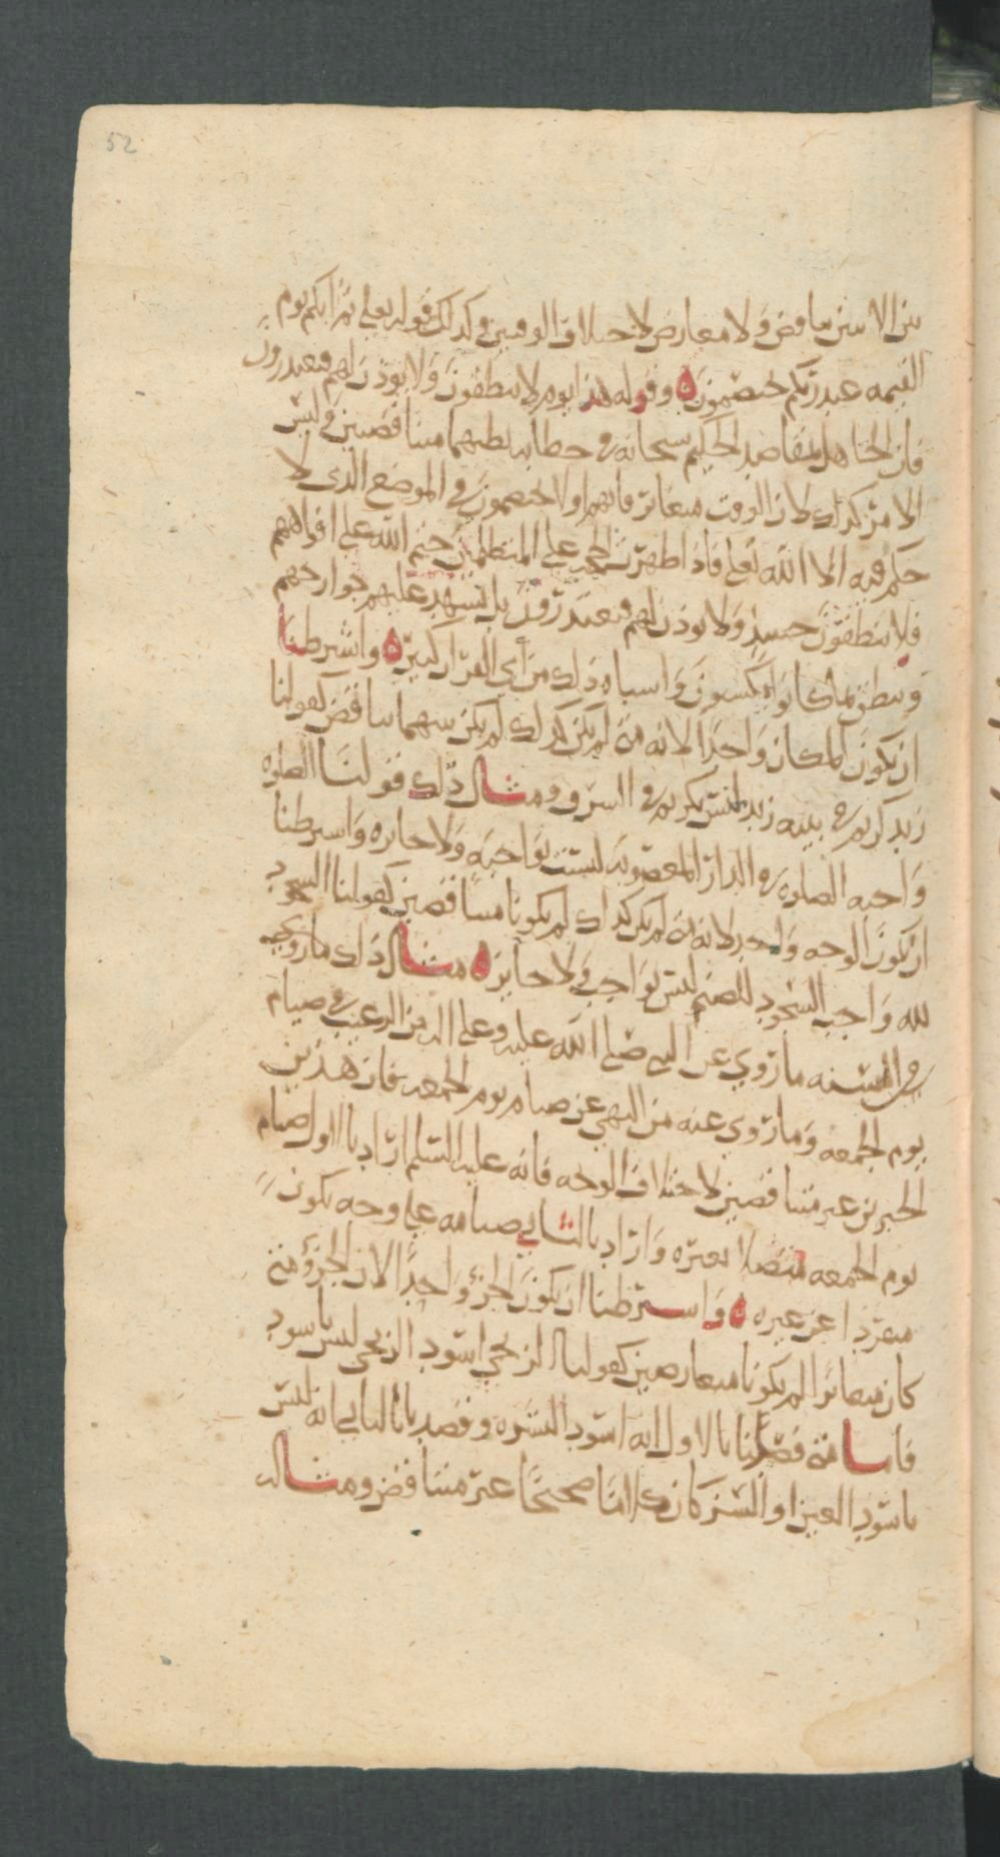 52
بين الاسين تناقض ولا تعارض لاختلاف الوقتين وكذلك قوله تعلى ثم انكم يوم
القيمه عند ربكم تختصمون ه وقوله هذا يوم لا ينطقون ولا يوذن لهم فيعتذرون
فان الجاهل بمقاصد الحكيم سبحانه في خطابه يظنهما متناقضين وليس
الامر كذلك لان الوقت متغاير فانهم اولا يختصمون في الموضع الذي لا
حكم فيه الا الله تعلى فاذا ظهرت الحجه على المتظلمين ختم الله على افواههم
فلا ينطقون حينيذ ولا يوذن لهم فيعتذرون بل تشهد عليهم جوارحهم
وتنطق بما كانوا يكسبون واشباه ذلك من أي القران كثيره ه واشترطنا
ان يكون المكان واحدا لانه متى لم يكن كذلك لم يكن بينهما تناقض كقولنا
زيد كريم في بيته زيد ليس بكريم في السوق ومثال ذلك قولنا الصلوه
واجبه الصلوه في الدار المغصوبه ليست بواجبه ولا جايزه واشترطنا
ان يكون الوجه واحد لانه متى لم يكن كذلك لم يكونا متناقضين كقولنا السجود
لله واجب السجود للصنم ليس بواجب ولا جايز ه مثال ذلك ما روي
في السنه ما روي عن النبي صلى الله عليه وعلى اله من الترغيب في صيام
يوم الجمعه وما روي عنه من النهي عن صيام يوم الجمعه فان هذين
الخبرين غير متناقضين لاختلاف الوجه فانه عليه السلم اراد بالاول صيام
يوم الجمعه متصلا بغيره واراد بالثاني صيامه على وجه يكون
منفردا عن غيره ه واشترطنا ان يكون الجزؤ واحدا لان الجزؤ متى
كان متغايرا لم يكونا متعارضين كقولنا الزنجي اسود الزنجي ليس باسود
فانا متى قصدنا بالاول انه اسود البشره وقصدنا بالثاني انه ليس
باسود العين او السن كان كلامنا صحيحا غير متناقض ومثاله